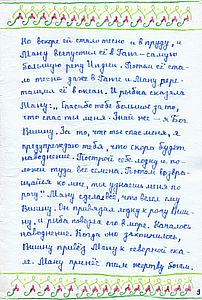 Но вскоре ей стало тесно и в пруду, и
Ману выпустил её в Ганг – самую
большую реку Индии. Потом ей ста-
ло тесно даже в Ганге и Ману пере-
тащил её в океан. И рыбка сказала
Ману: „ Спасибо тебе большое за то,
что спас ты меня. Знай же – я Бог
Вишну. За то, что ты спас меня, я
предупреждаю тебя, что скоро будет
наводнение. Построй себе лодку и по-
ложи туда все семена. Потом
ко мне, ты узнаешь меня по
рогу." Ману сделал всё, что велел ему
Вишну. Он привязал лодку к рогу Виш-
ну, и рыба повезла его в море. Началось
наводнение. Когда оно закончилось,
Вишну привёз Ману к северной ска-
ле. Ману принёс там жертву Богам.
9